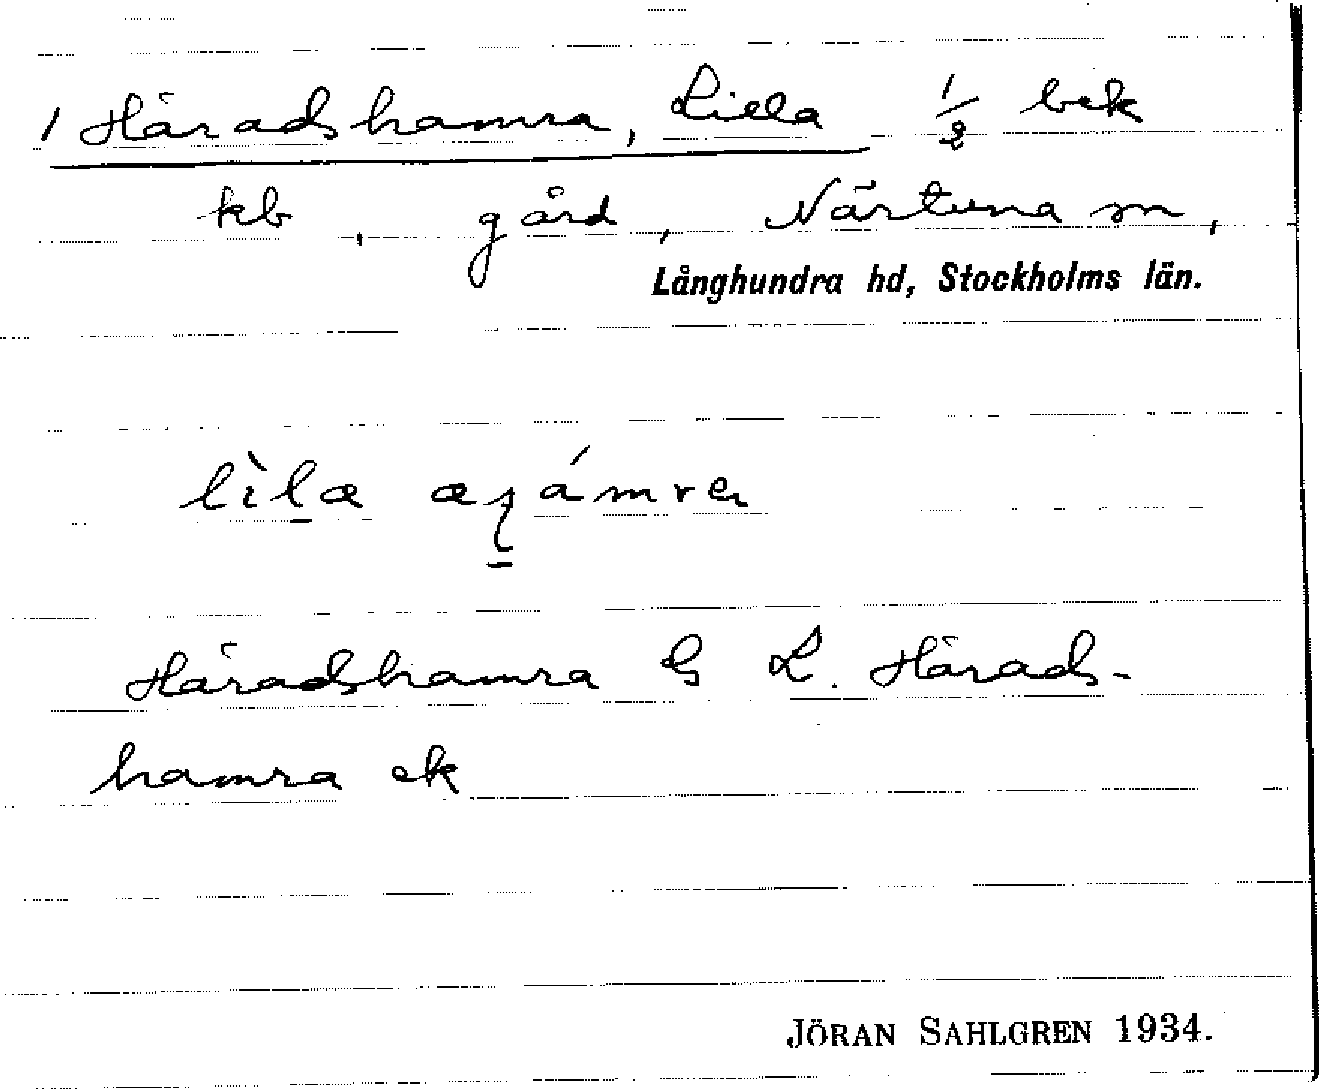 1 Häradshamra, Lilla 1/2 bek
kb, gård, Närtuna sn,
Långhundra hd, Stockholms län.
lìla
Häradshamra G L. Härads-
hamra ek
JÖRAN SAHLGREN 1934.